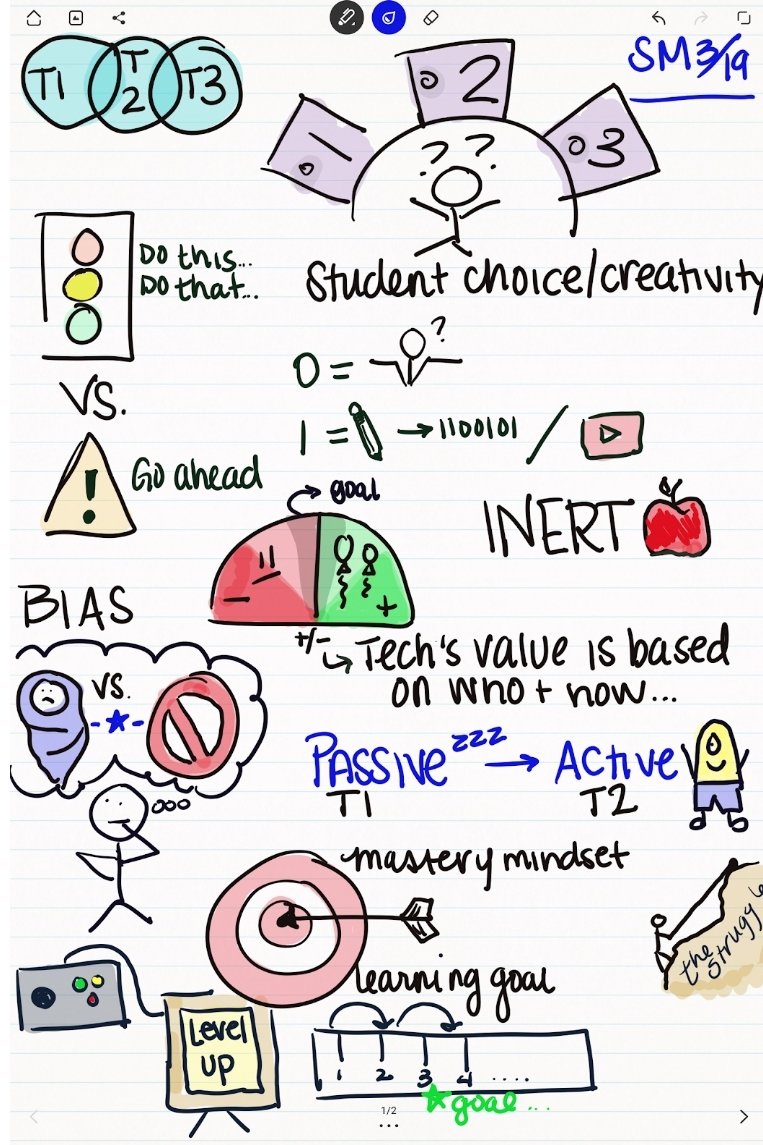 T1 T2 T3
SM 3/19
1 2 3
? ?
Do this...
Do that...
Student choice/creativity
VS.
0 = ?
1 = → 1100101 /
! Go ahead
goal
INERT
BIAS
- +
+/- ↳ Tech's value is based
on who + how...
VS.
PASSIVE zzz → ACTIVE
T1 T2
mastery mindset
the struggle
learning goal
Level
UP
1 2 3 4 ....
goal...
1/2